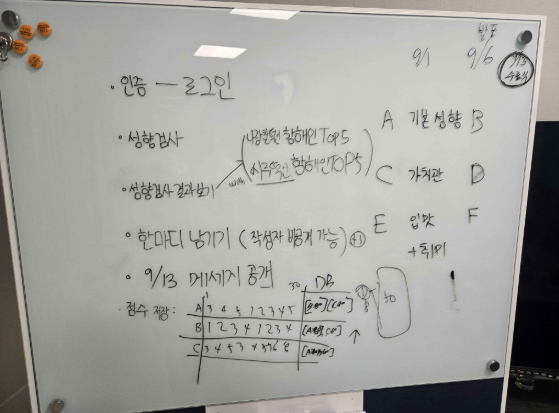 발표
9/1 9/6 9/13
수료식
· 인증 — 로그인
· 성향검사
나랑 비슷한 항해인 TOP5
A 기본 성향 B
· 성향검사 결과보기 with
항해인 TOP5
C 가치관 D
· 한마디 남기기 (작성자 비공개 가능) +1
E 입맛 F
+ 취미
· 9/13 메세지 공개
· 점수 저장
DB
A 3 4 5 1 2 3 4 5
B 1 2 3 4 1 2 3 4
C 3 4 5 3 4 5 6 8
30